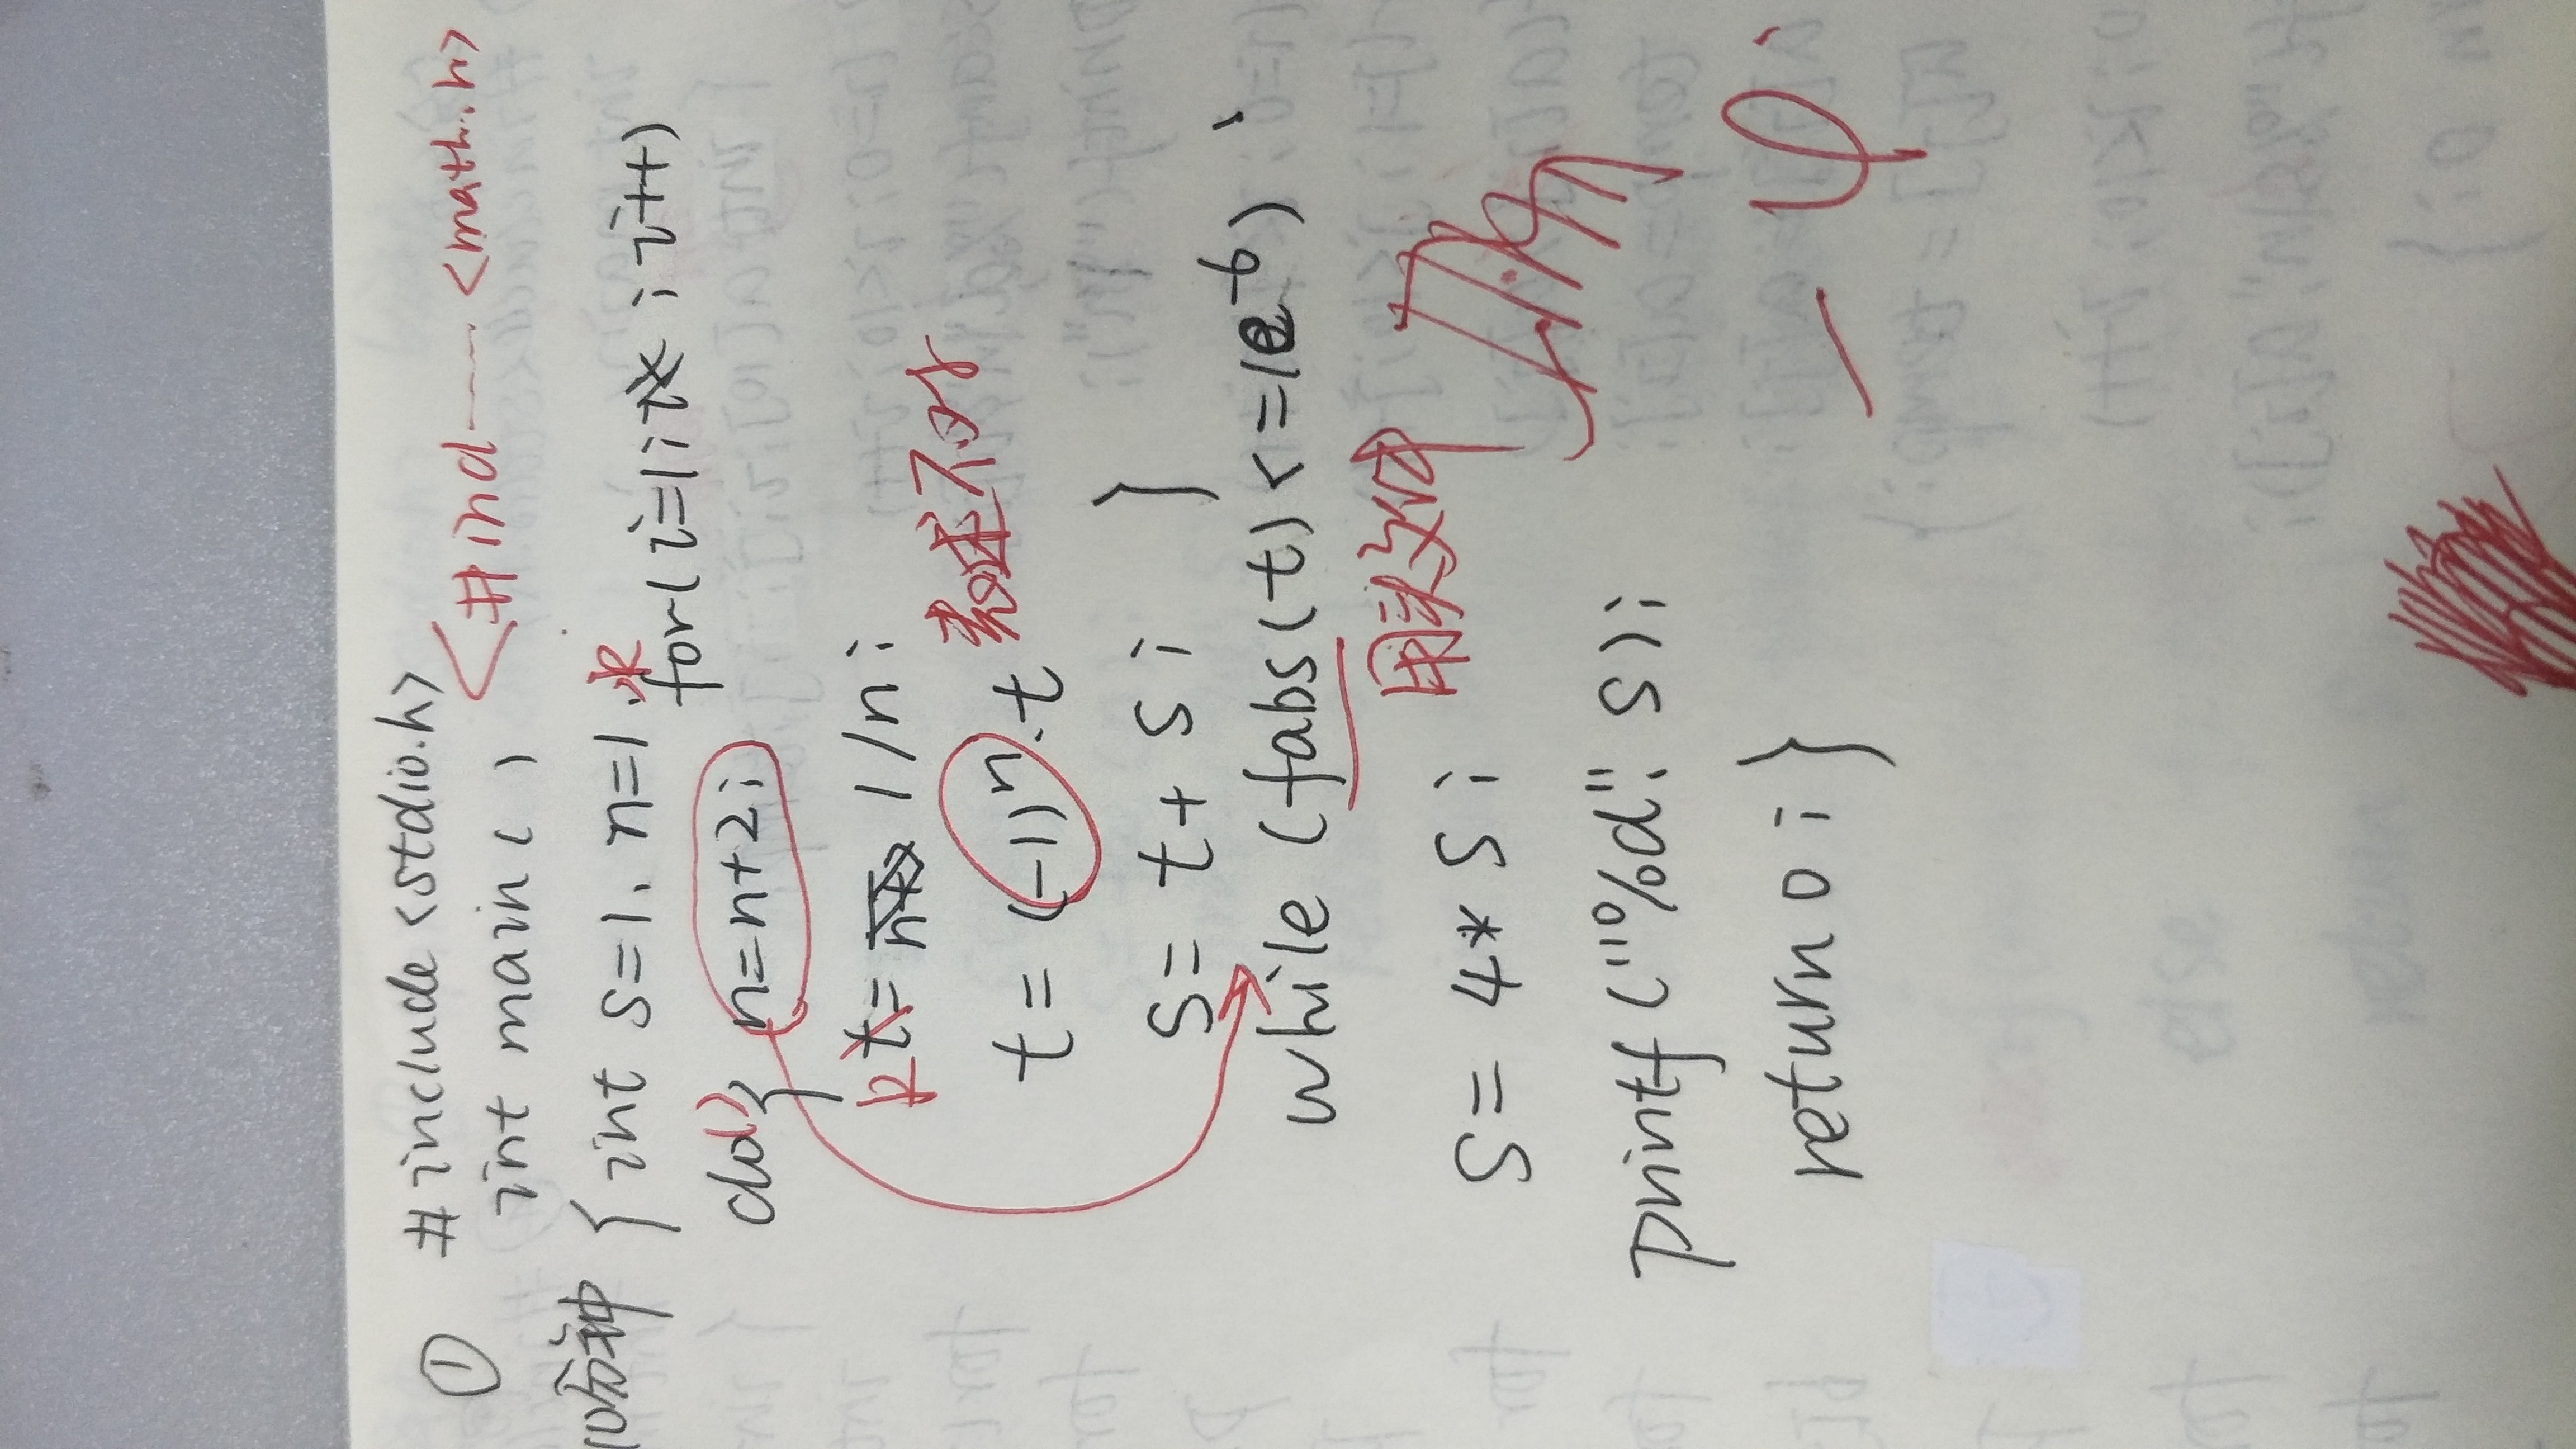 ① #include<stdio.h>
<#incl—— <math.h>
int main( )
10分钟 { int s=1, n=1,k
for(i=1; ; i++)
do{ n=n+2;
k t= 1/n;
t= (-1)ⁿ·t 表述不对
s= t+ s; }
while (fabs(t)<=1e⁻⁶) ;
用头文件
s= 4* s;
printf("%d", s);
return 0; }